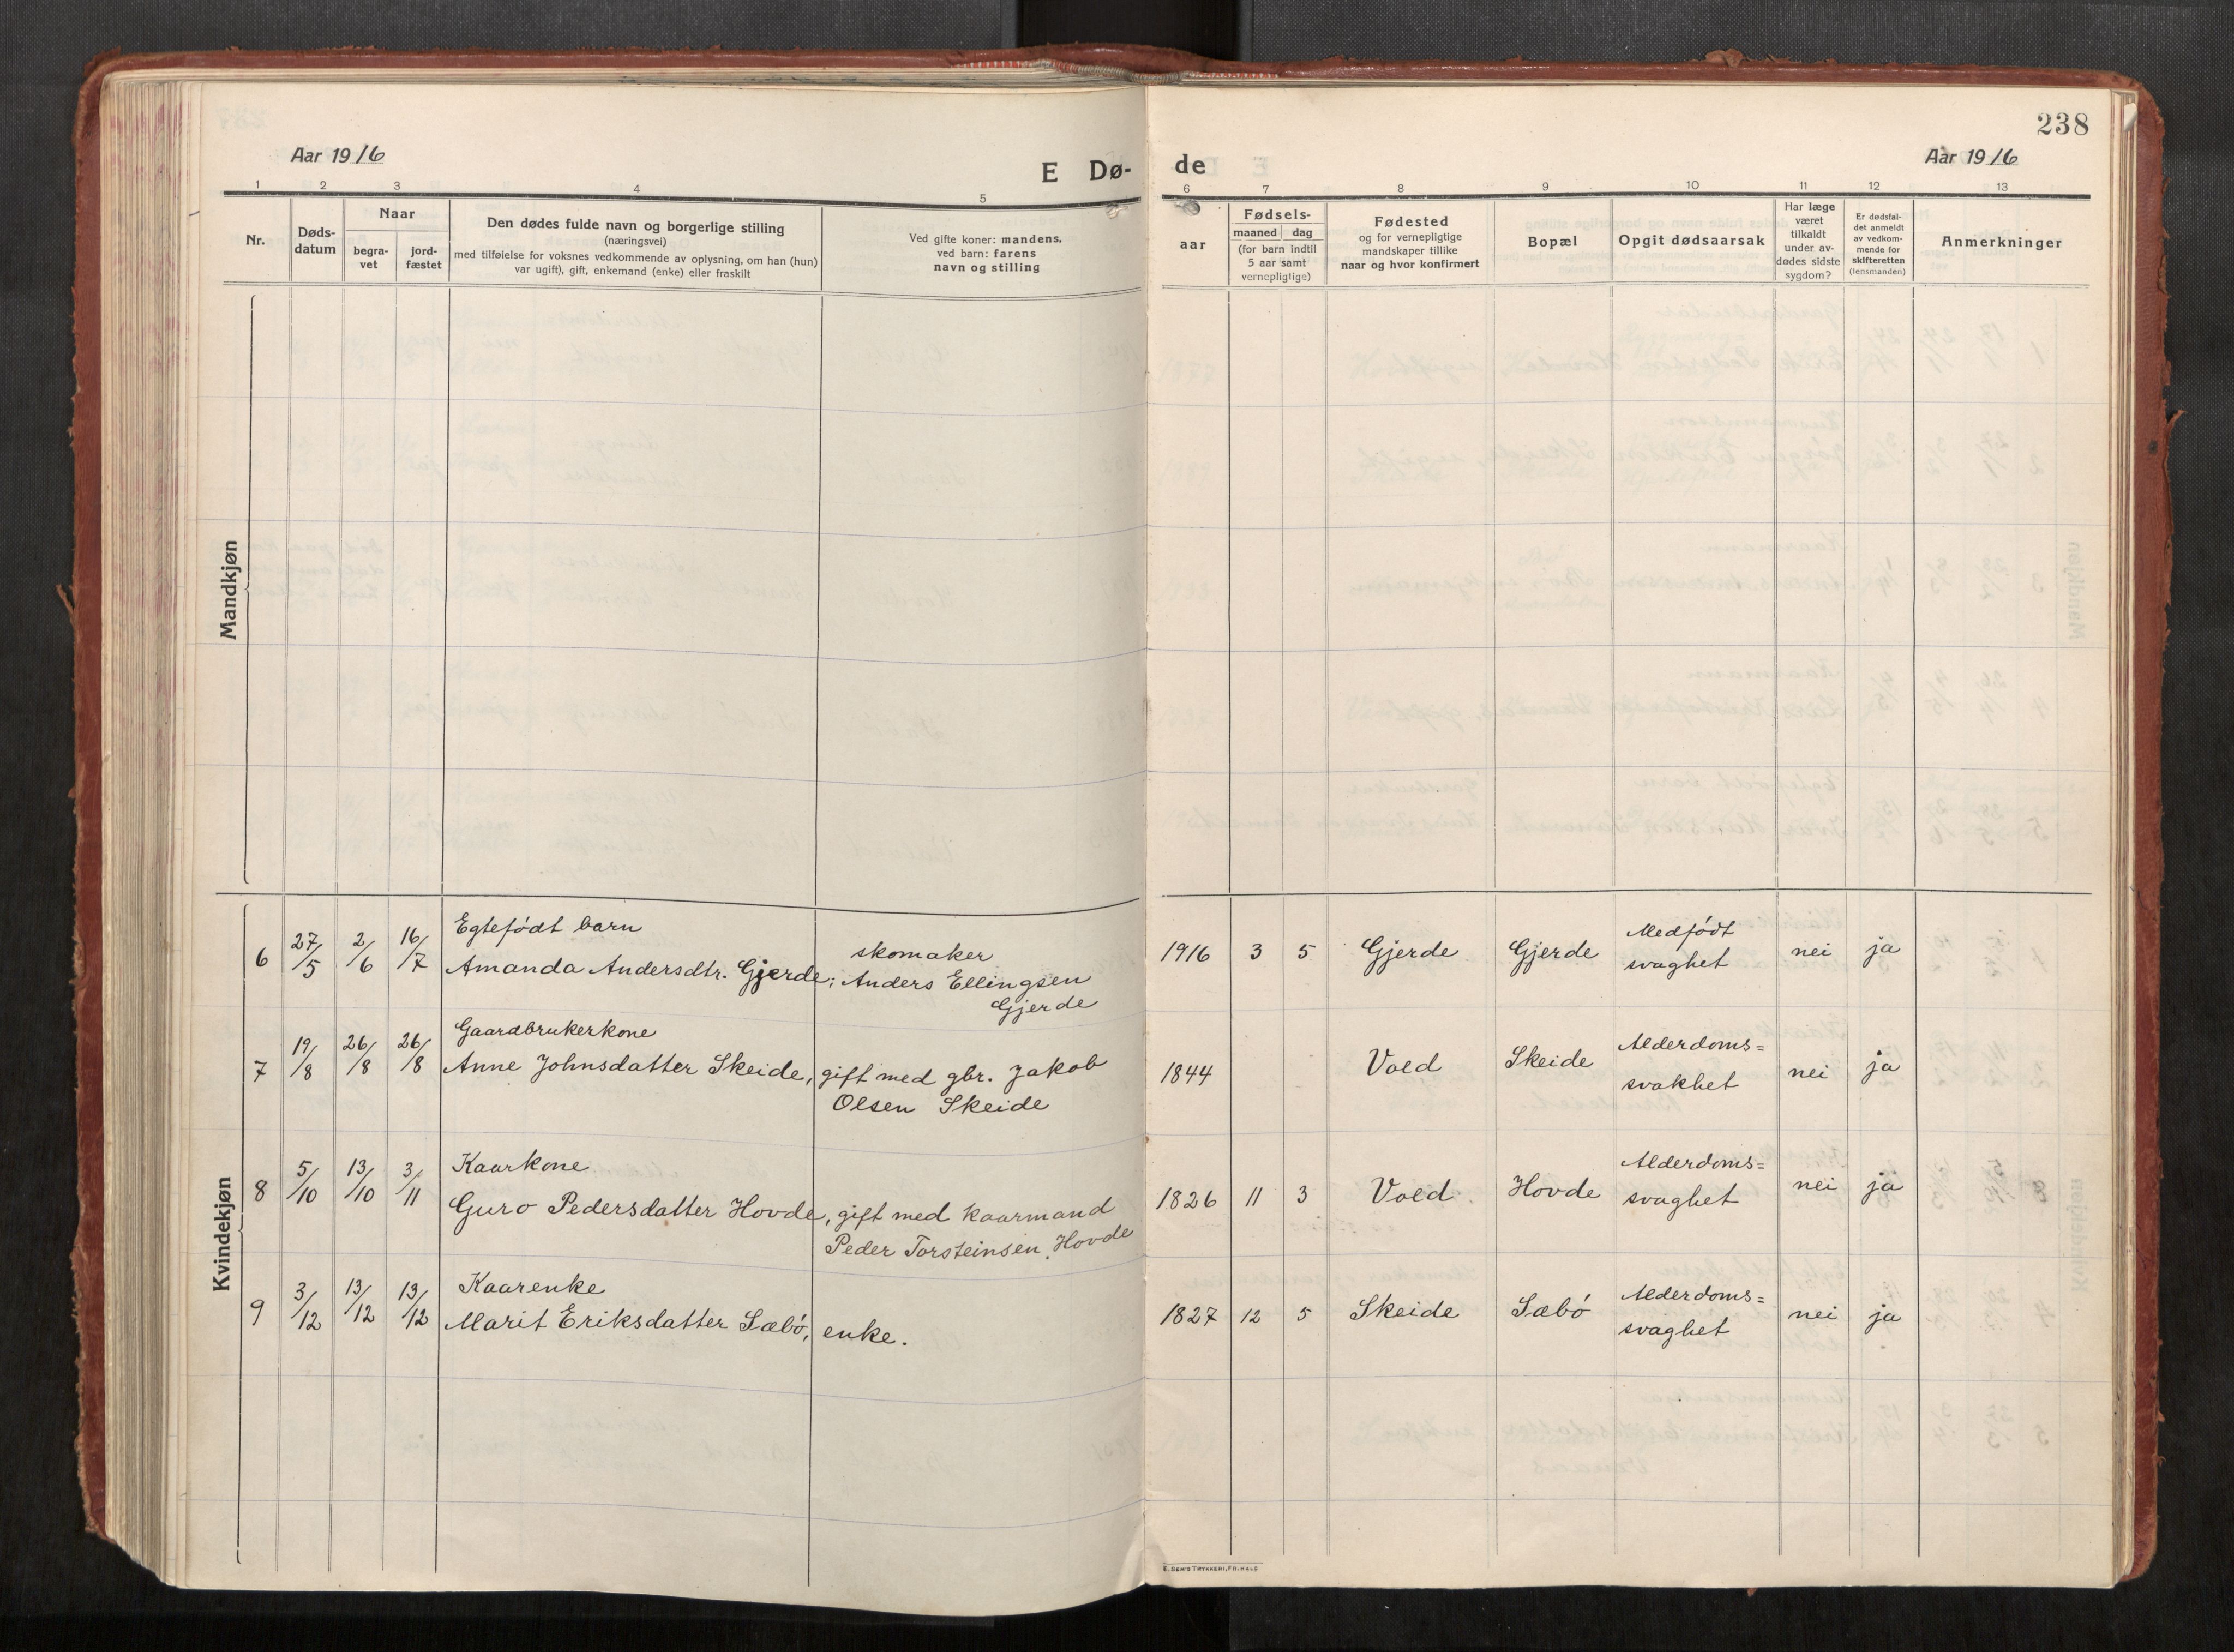 238
Aar 1916
E Dø-
de
Aar 1916
1 2 3 4 5 6 7 8 9 10 11 12 13
Nr.
Døds-
datum
Naar
begra-
vet
jord-
fæstet
Den dødes fulde navn og borgerlige stilling
(næringsvei)
med tilføielse for voksnes vedkommende av oplysning, om han (hun)
var ugift), gift, enkemand (enke) eller fraskilt
Ved gifte koner: mandens,
ved barn: farens
navn og stilling
aar
Fødsels-
maaned dag
(for barn indtil
5 aar samt
vernepligtige)
Fødested
og for vernepligtige
mandskaper tillike
naar og hvor konfirmert
Bopæl
Opgit dødsaarsak
Har læge
været
tilkaldt
under av-
dødes sidste
sygdom?
Er dødsfal-
det anmeldt
av vedkom-
mende for
skifteretten
(lensmanden)
Anmerkninger
Mandkjøn
Kvindekjøn
6 27/5 2/6 16/7
Egtefødt barn
Amanda Andersdtr. Gjerde;
skomaker
Anders Ellingsen
Gjerde
1916 3 5 Gjerde Gjerde
Medfødt
svaghet
nei ja
7 19/8 26/8 26/8
Gaardbrukerkone
Anne Johnsdatter Skeide,
gift med gbr. Jakob
Olsen Skeide
1844 Vold Skeide
Alderdoms=
svakhet
nei ja
8 5/10 13/10 3/11
Kaarkone
Guro Pedersdatter Hovde,
gift med kaarmand
Peder Torsteinsen Hovde
1826 11 3 Vold Hovde
Alderdoms=
svaghet
nei ja
9 3/12 13/12 13/12
Kaarenke
Marit Eriksdatter Sæbø,
enke.
1827 12 5 Skeide Sæbø
Alderdoms=
svaghet
nei ja
E. SEM'S TRYKKERI, FR.HALD